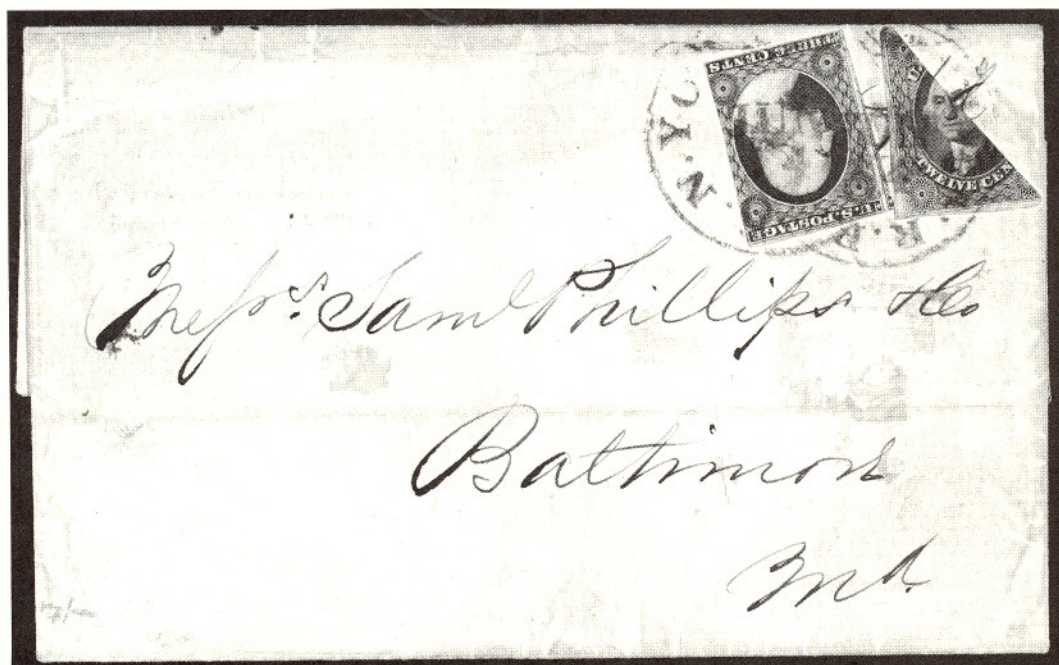 THREE CENTS
U.S. POSTAGE
U.
TWELVE CEN
N.YO
R.R.
Messrs. Saml Phillips & Co
Baltimore
Md.